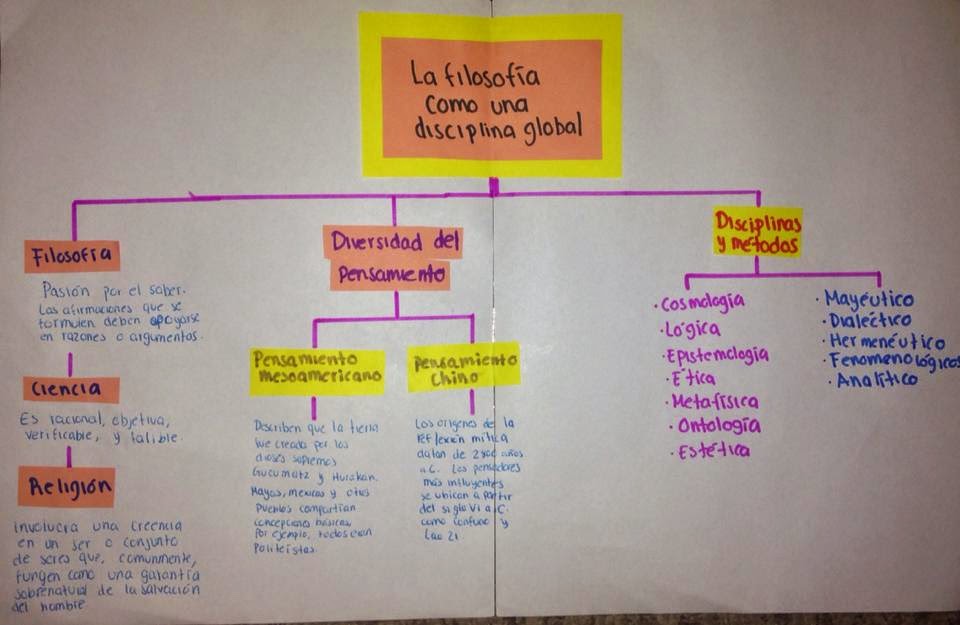 La filosofía
como una
disciplina global
Filosofía
Pasión por el saber.
Las afirmaciones que se
formulen deben apoyarse
en razones o argumentos.
Ciencia
Es racional, objetiva,
verificable, y falible.
Religión
Involucra una creencia
en un ser o conjunto
de seres que, comunmente,
fungen como una garantía
sobrenatural de la salvación
del hombre
Diversidad del
pensamiento
Pensamiento
mesoamericano
Describen que la tierra
fue creada por los
dioses supremos
Gucumatz y Hurakan.
Mayas, mexicas y otros
Pueblos compartían
concepciones básicas,
Por ejemplo, todos eran
Politeístas.
Pensamiento
Chino
Los orígenes de la
reflexión mítica
datan de 2800 años
a.C. Los pensadores
más influyentes
se ubican a partir
del siglo VI a.C.
como Confucio y
Lao
Disciplinas
y métodos
· Cosmología
· Lógica
· Epistemología
· Ética
· Metafísica
· Ontología
· Estética
· Mayéutico
· Dialéctico
· Hermenéutico
· Fenomenológicos
· Analítico